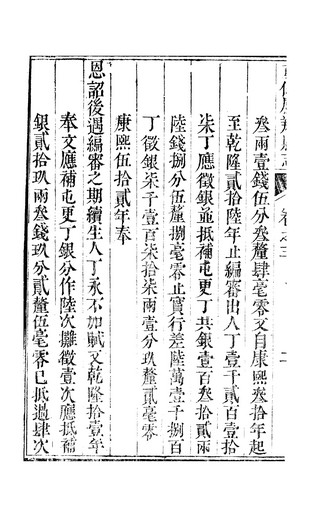 卷之三
叁兩壹錢伍分叁釐肆毫零又自康熙叁拾年起
至乾隆貳拾陸年止編審出人丁壹千貳百壹拾
柒丁應徵銀並抵補屯更丁共銀壹百叁拾貳兩
陸錢捌分伍釐捌毫零止實行差陸萬壹千捌百
丁徵銀柒千壹百柒拾柒兩壹分玖釐貳毫零
康熙伍拾貳年奉
恩詔後遇編審之期續生人丁永不加賦又乾隆拾壹年
奉文應補屯更丁銀分作陸次攤徵壹次應抵補
銀貳拾玖兩叁錢玖分貳釐伍毫零已抵過肆次